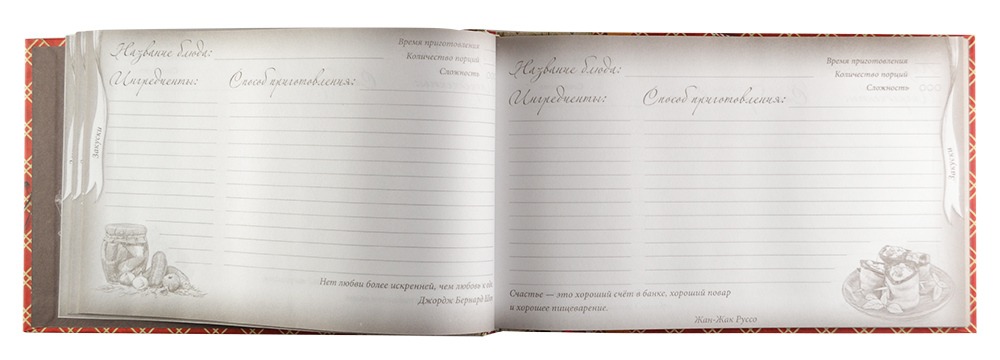 Название блюда:
Время приготовления
Количество порций
Сложность
Ингредиенты:
Способ приготовления:
Закуски
Нет любви более искренней, чем любовь к
Джордж Бернард
Название блюда:
Время приготовления
Количество порций
Сложность
Ингредиенты:
Способ приготовления:
Закуски
Счастье — это хороший счёт в банке, хороший повар
и хорошее пищеварение.
Жан-Жак Руссо